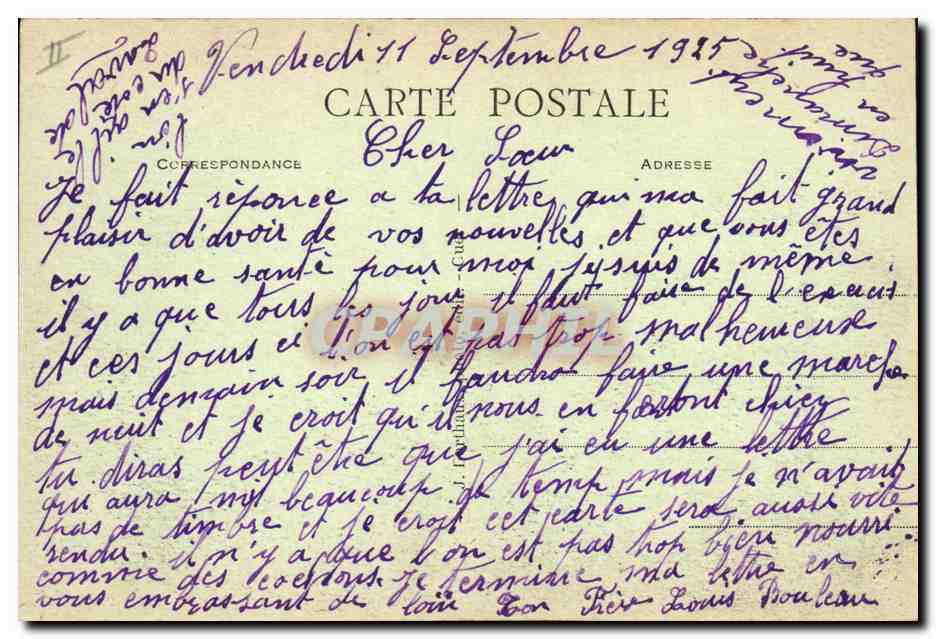 II
Vendredi 11 Septembre 1925
CARTE POSTALE
Cher Soeur
CORRESPONDANCE
ADRESSE
Je fait réponce a ta lettre qui ma fait grand
plaisir d'avoir de vos nouvelles et que vous êtes
en bonne santé pour moi je suis de même
il y a que tous les jour il faut faire de l'exercis
et ces jours ci l'on est pas trop malheureuse
mais demain soir il faudra faire une marche
de nuit et je croit qu'il nous en feront chier
tu diras peut être que j'ai eu une lettre
qui aura mis beaucoup de temp mais je n'avait
pas de timbre et je croit cet carte sera aussi vite
rendu. il n'y a que l'on est pas trop bien nourri
comme des cochons. Je termine ma lettre en
vous embrassant de loin Ton Frère Louis Bouleau